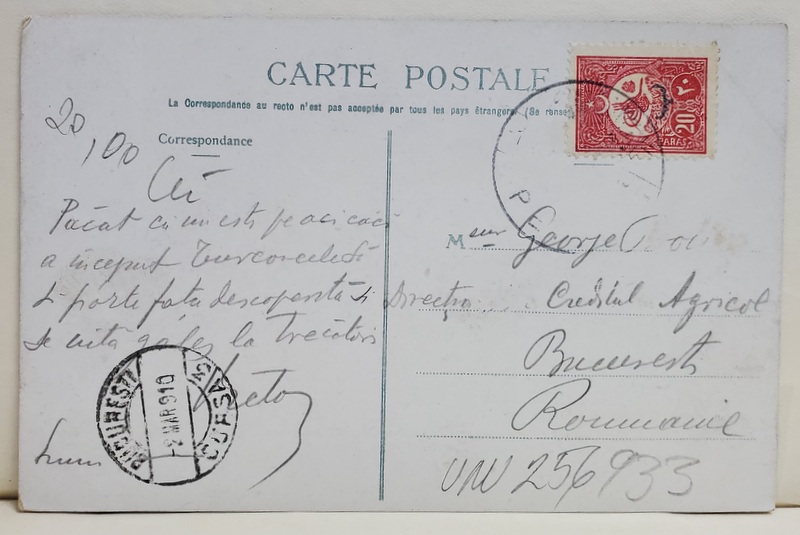 CARTE POSTALE
La Correspondance au recto n'est pas acceptée par tous les pays étrangers (Se rense
Correspondance
20
100
Păcat că nu ești pe aici căci
a început Turcoaicele să
-și poarte fața descoperită și
se uita galeș la trecători
BUCUREȘTI
2 MAR 910
CURSA
٢٠
20
PARAS
PE
Msieur George
Direcția Creditul Agricol
Bucuresti
Roumanie
UNV 256933